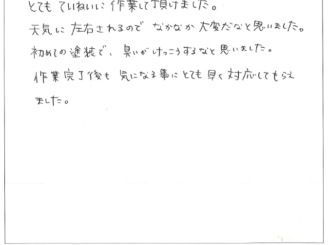 とても ていねいに 作業して頂けました。
天気に 左右されるので なかなか 大変だなと思いました。
初めての 塗装で、臭いがけっこうするなと 思いました。
作業完了後も 気になる事に とても 早く 対応してもらえ
ました。